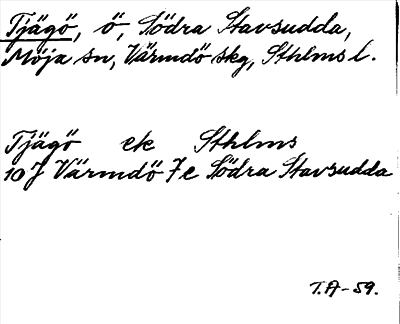 Tjägö, ö, Södra Stavsudda,
Möja sn, Värmdö skg, Sthlms l.
Tjägö ek Sthlms
10 J Värmdö 7 e Södra Stavsudda
T.A-59.